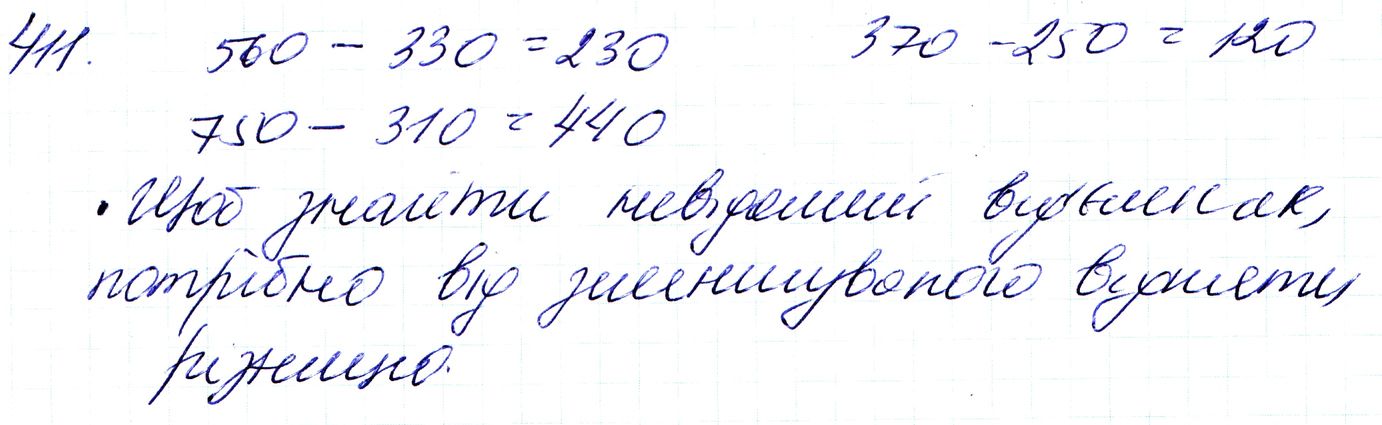 411. 560 - 330 = 230 370 - 250 = 120
750 - 310 = 440
• Щоб знайти невідомий від'ємник,
потрібно від зменшуваного відняти
різницю.